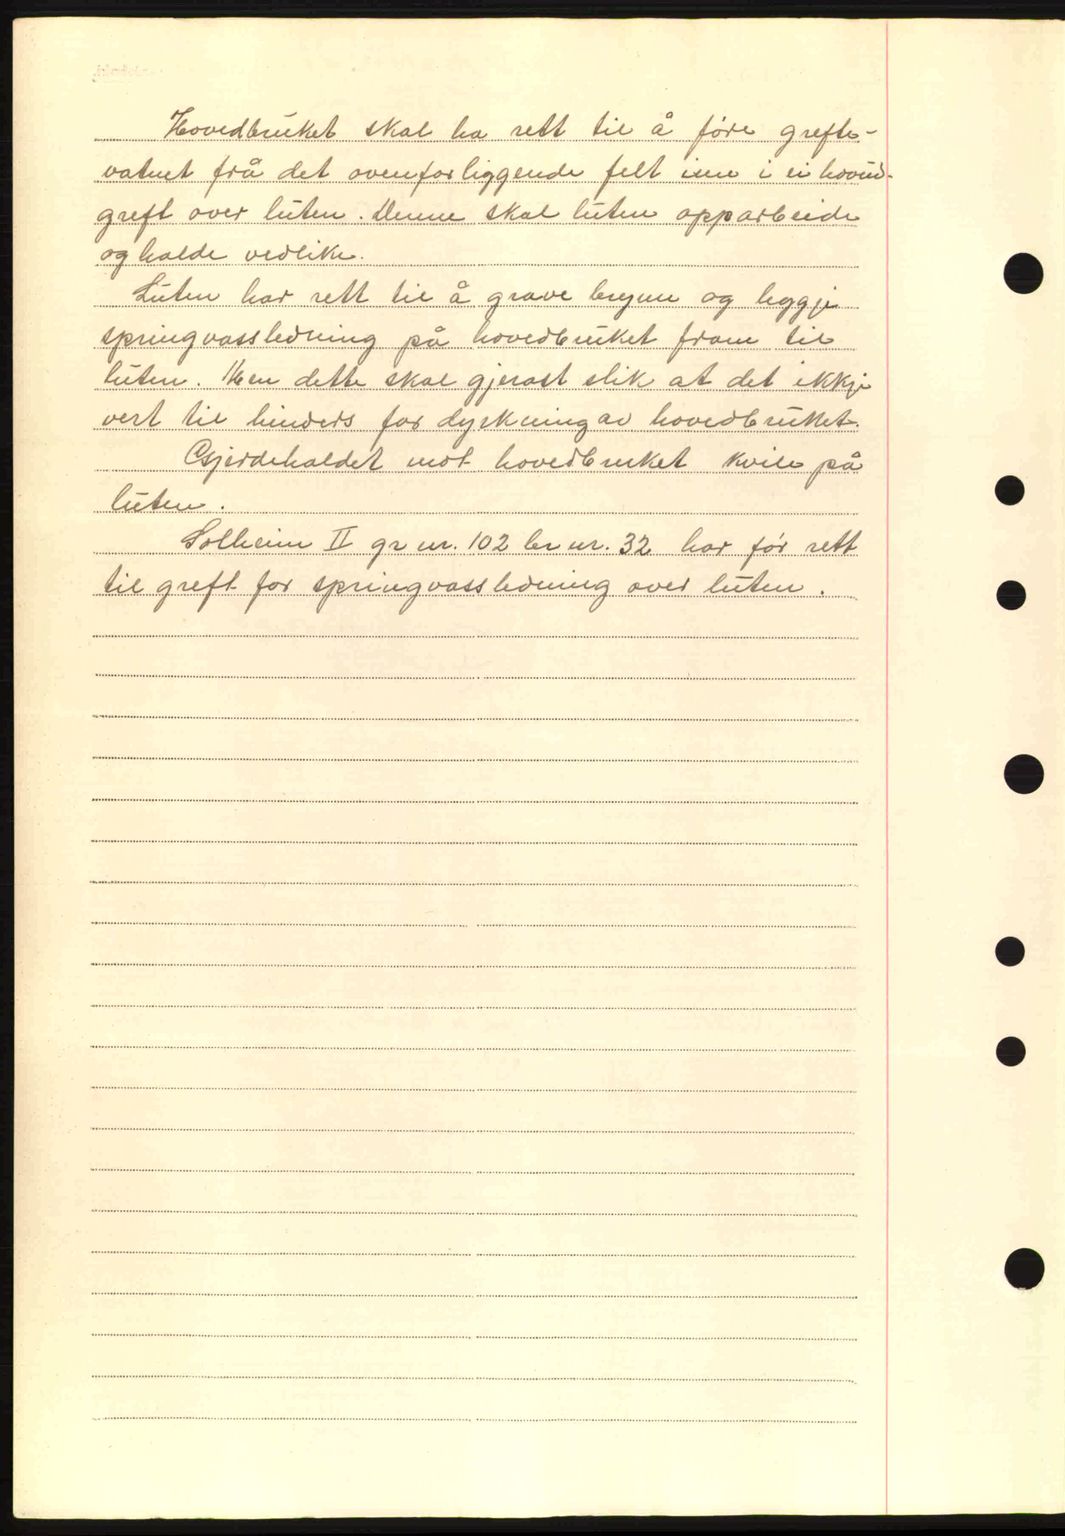 Hovedbruket skal ha rett til å føre grefte-
vatnet frå det ovenforliggende felt inn i ei hovud-
greft over luten. Denne skal luten opparbeide
og halde vedlike.
Luten har rett til å grave brynn og leggje
springvassledning på hovedbruket fram til
luten. Men dette skal gjerast slik at det ikkje
vert til hinders for dyrkning av hovedbruket.
Gjerdehaldet mot hovedbruket kvile på
luten.
Solheim II gr nr. 102 br nr. 32 har før rett
til greft for springvassledning over luten.